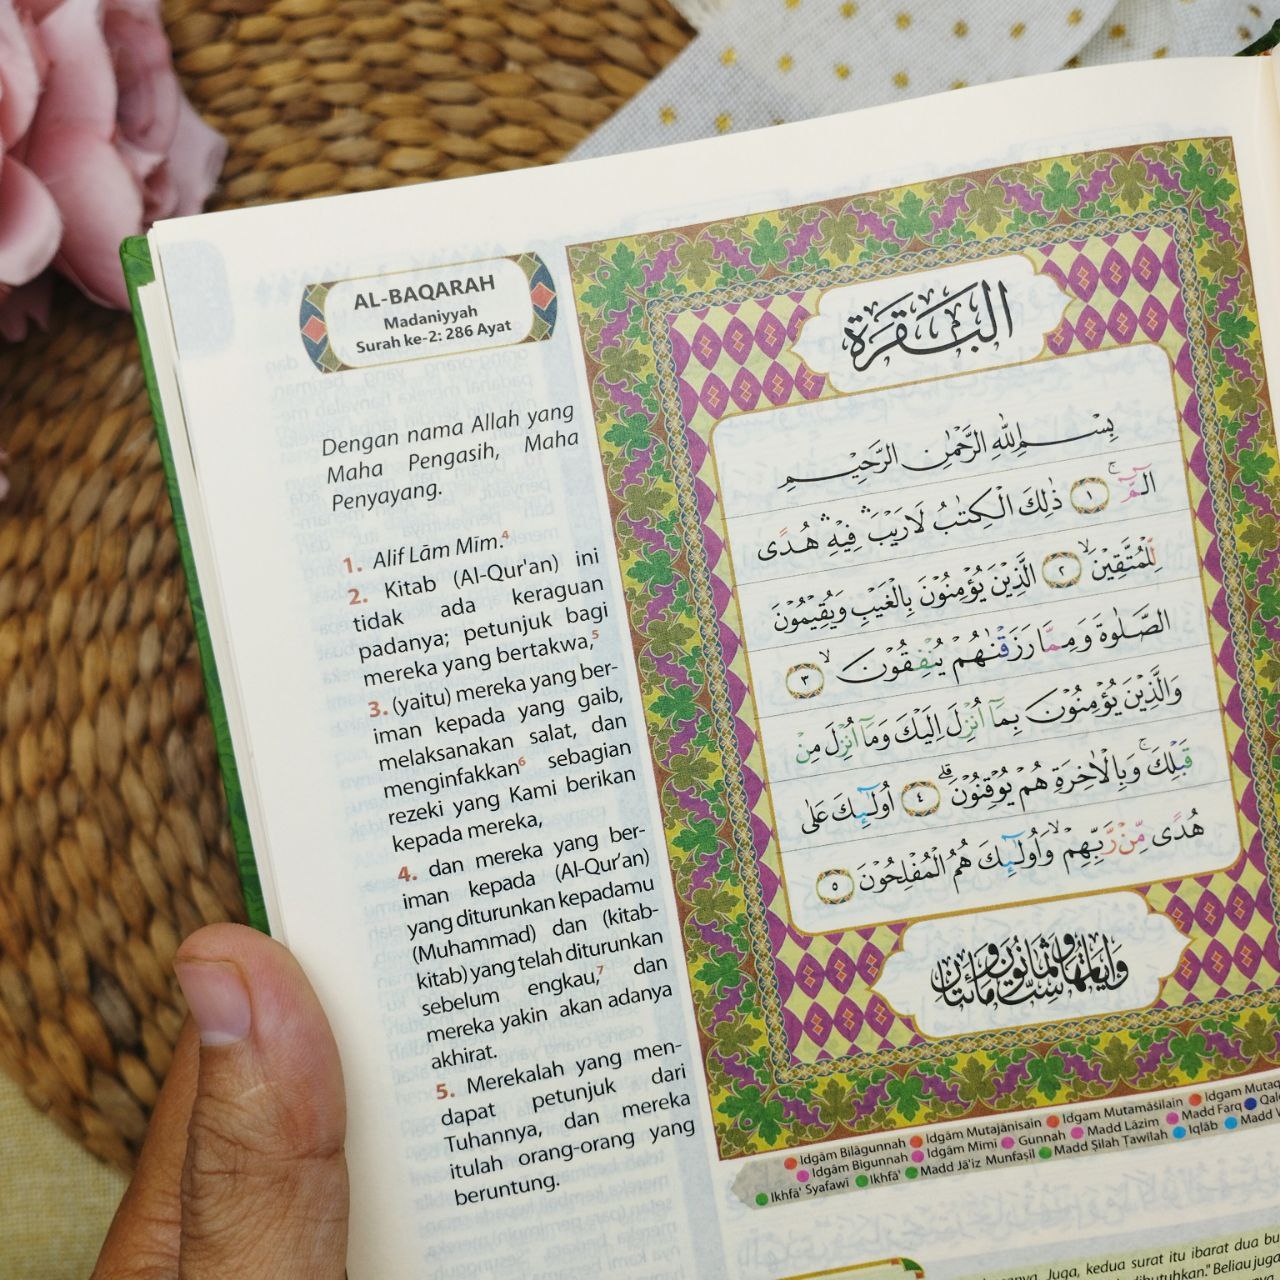 AL-BAQARAH
Madaniyyah
Surah ke-2: 286 Ayat
Dengan nama Allah yang
Maha Pengasih, Maha
Penyayang.
1. Alif Lām Mīm.4
2. Kitab (Al-Qur'an) ini
tidak ada keraguan
padanya; petunjuk bagi
mereka yang bertakwa,5
3. (yaitu) mereka yang ber-
iman kepada yang gaib,
melaksanakan salat, dan
menginfakkan6 sebagian
rezeki yang Kami berikan
kepada mereka,
4. dan mereka yang ber-
iman kepada (Al-Qur'an)
yang diturunkan kepadamu
(Muhammad) dan (kitab-
kitab) yang telah diturunkan
sebelum engkau,7 dan
mereka yakin akan adanya
akhirat.
5. Merekalah yang men-
dapat petunjuk dari
Tuhannya, dan mereka
itulah orang-orang yang
beruntung.
البَقَرَة
بِسْمِ اللّٰهِ الرَّحْمٰنِ الرَّحِيْمِ
الۤمّۤ ۚ ١ ذٰلِكَ الْكِتٰبُ لَا رَيْبَ ۛ فِيْهِ ۛ هُدًى
لِّلْمُتَّقِيْنَ ۙ ٢ الَّذِيْنَ يُؤْمِنُوْنَ بِالْغَيْبِ وَيُقِيْمُوْنَ
الصَّلٰوةَ وَمِمَّا رَزَقْنٰهُمْ يُنْفِقُوْنَ ۙ ٣
وَالَّذِيْنَ يُؤْمِنُوْنَ بِمَآ اُنْزِلَ اِلَيْكَ وَمَآ اُنْزِلَ مِنْ
قَبْلِكَ ۚ وَبِالْاٰخِرَةِ هُمْ يُوْقِنُوْنَ ۗ ٤ اُولٰۤىِٕكَ عَلٰى
هُدًى مِّنْ رَّبِّهِمْ ۙ وَاُولٰۤىِٕكَ هُمُ الْمُفْلِحُوْنَ ٥
وَاٰيَاتُهَا سِتٌّ وَثَمَانُوْنَ وَمِائَتَانِ
Idgām Bilāgunnah Idgām Mutajānisain Idgam Mutamāṡilain Idgam Mutaq
Idgām Bigunnah Idgām Mimī Gunnah Madd Lāzim Madd Farq Qal
Ikhfā' Syafawī Ikhfā' Madd Jā'iz Munfaṣil Madd Ṣilah Ṭawīlah Iqlāb Madd
Juga, kedua surat itu ibarat dua bu
dibutuhkan." Beliau juga